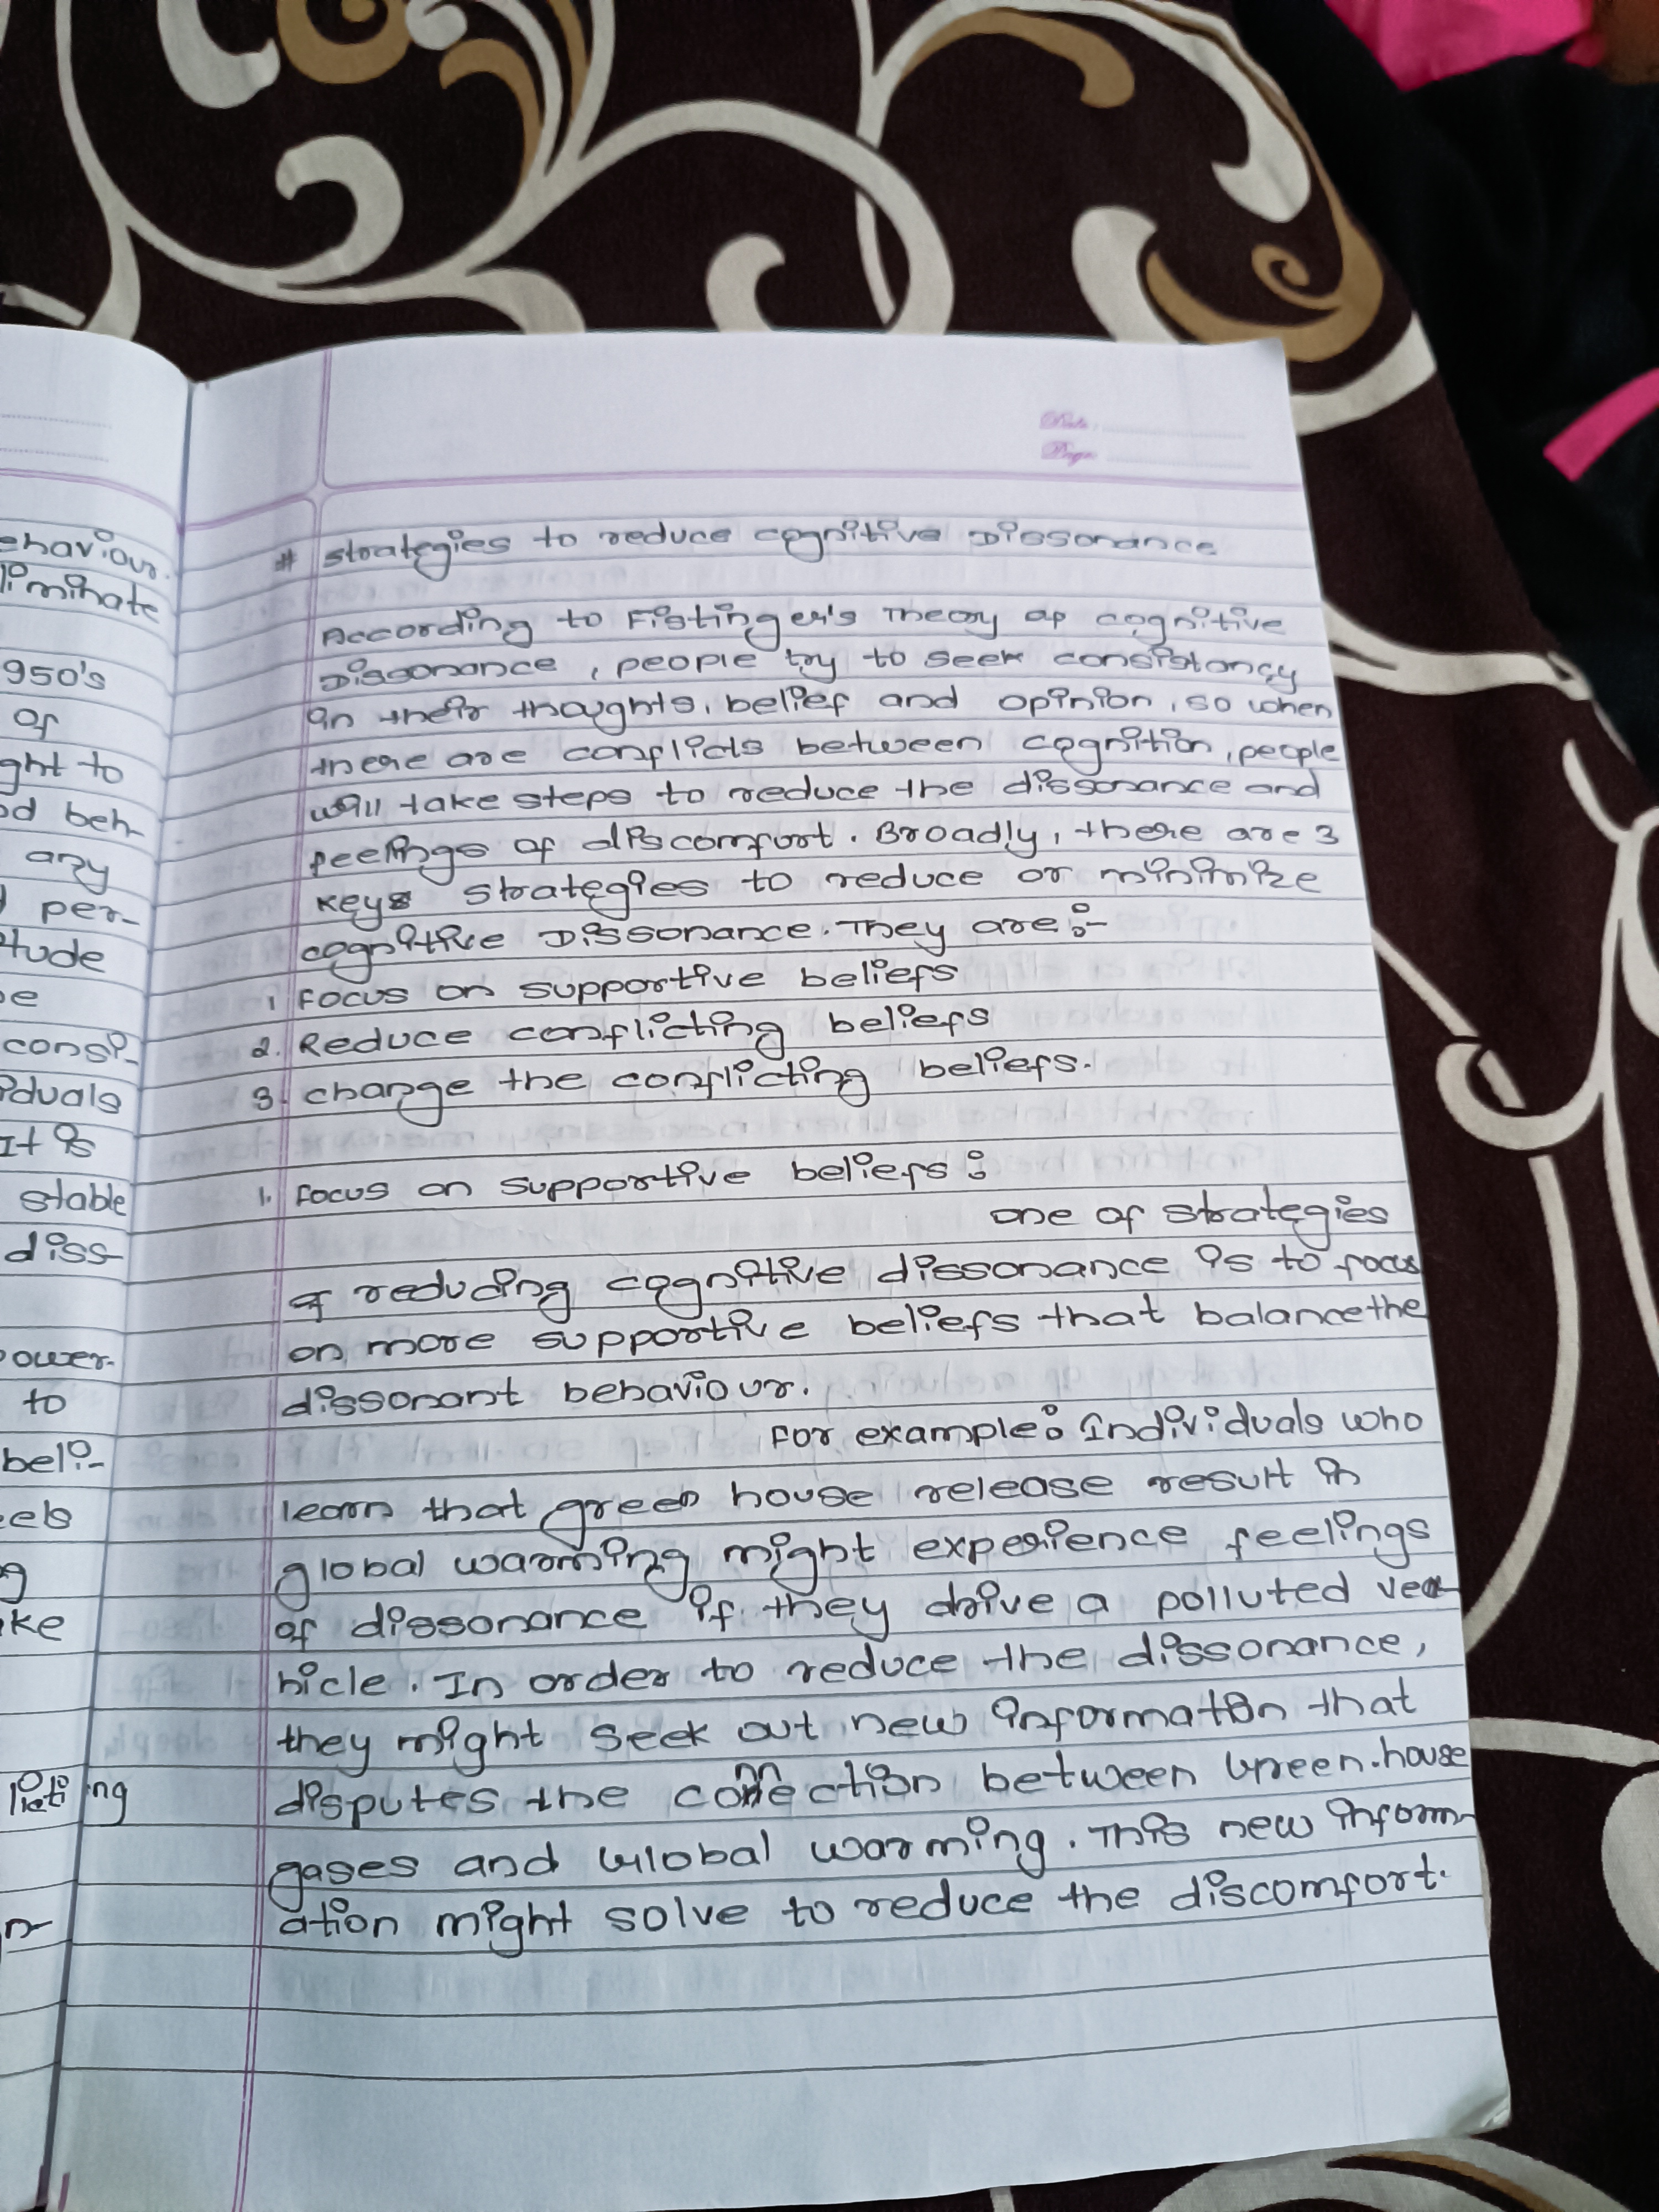 ehaviour.
liminate
950's
of
ght to
od beh-
any
per-
tude
consi-
iduals
It is
stable
diss-
ower-
to
beli-
eels
g
ke
licting
Date
Page
# strategies to reduce cognitive Dissonance
According to Fistinger's Theory of cognitive
Dissonance, people try to seek consistancy
in their thoughts, belief and opinion, so when
there are conflicts between cognition, people
will take steps to reduce the dissonance and
feelings of discomfort. Broadly, there are 3
keys strategies to reduce or minimize
cognitive Dissonance. They are :-
1 Focus on supportive beliefs
2. Reduce conflicting beliefs
3. change the conflicting beliefs.
1. Focus on supportive beliefs :
one of strategies
of reducing cognitive dissonance is to focus
on more supportive beliefs that balance the
dissonant behaviour.
For example: Individuals who
learn that green house release result in
global warming might experience feelings
of dissonance if they drive a polluted ve-
hicle. In order to reduce the dissonance,
they might seek out new information that
disputes the connection between Green.house
gases and Global warming. This new inform-
ation might solve to reduce the discomfort.